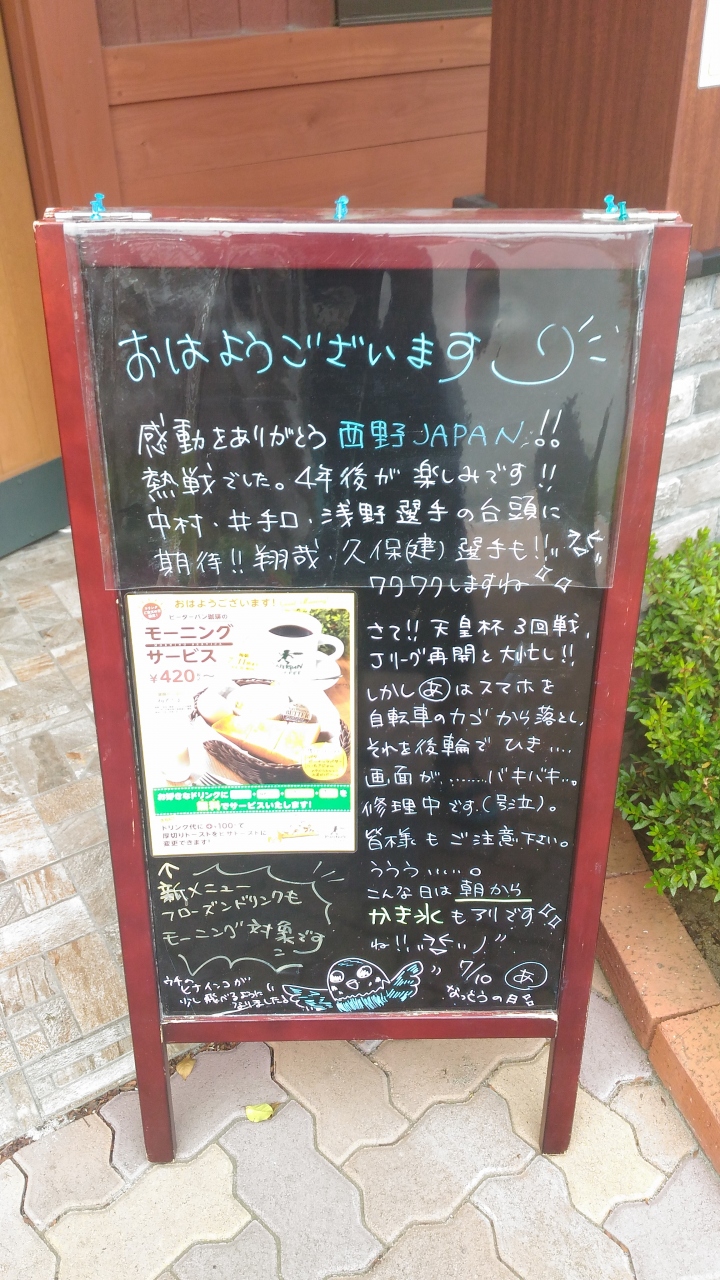 おはようございます
感動をありがとう 西野JAPAN!!
熱戦でした。4年後が楽しみです!!
中村・井手口・浅野選手の台頭に
期待!!翔哉・久保(建)選手も!!
ワクワクしますね
さて!!天皇杯3回戦、
Jリーグ再開と大忙し!!
しかしあはスマホを
自転車のカゴから落とし、
それを後輪でひき....
画面が........バキバキ...。
修理中です。(号泣)。
皆様もご注意下さい。
ううう.....。
こんな日は朝から
かき氷もアリです
ね!!
7/10 あ
なっとうの日
おはようございます!
ピーターパン珈琲の
モーニング
サービス
¥420~
お好きなドリンクに
無料でサービスいたします!
ドリンク代に⊕100で
厚切りトーストをピザトーストに
変更できます!
↑
新メニュー
フローズンドリンクも
モーニング対象です
ウチの
ヒナインコが
少し飛べるように
なりました